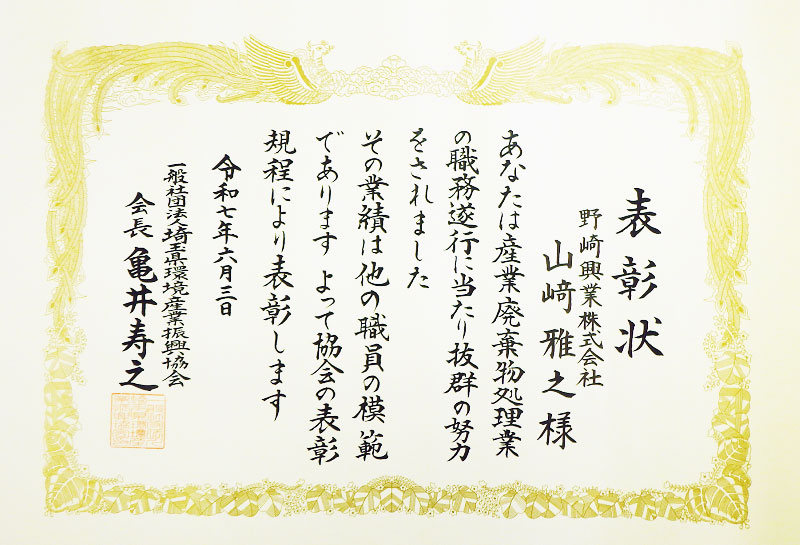 表彰状
野崎興業株式会社
山﨑雅之様
あなたは産業廃棄物処理業
の職務遂行に当たり抜群の努力
をされました
その業績は他の職員の模範
であります よって協会の表彰
規程により表彰します
令和七年六月三日
一般社団法人埼玉県環境産業振興協会
会長 亀井寿之